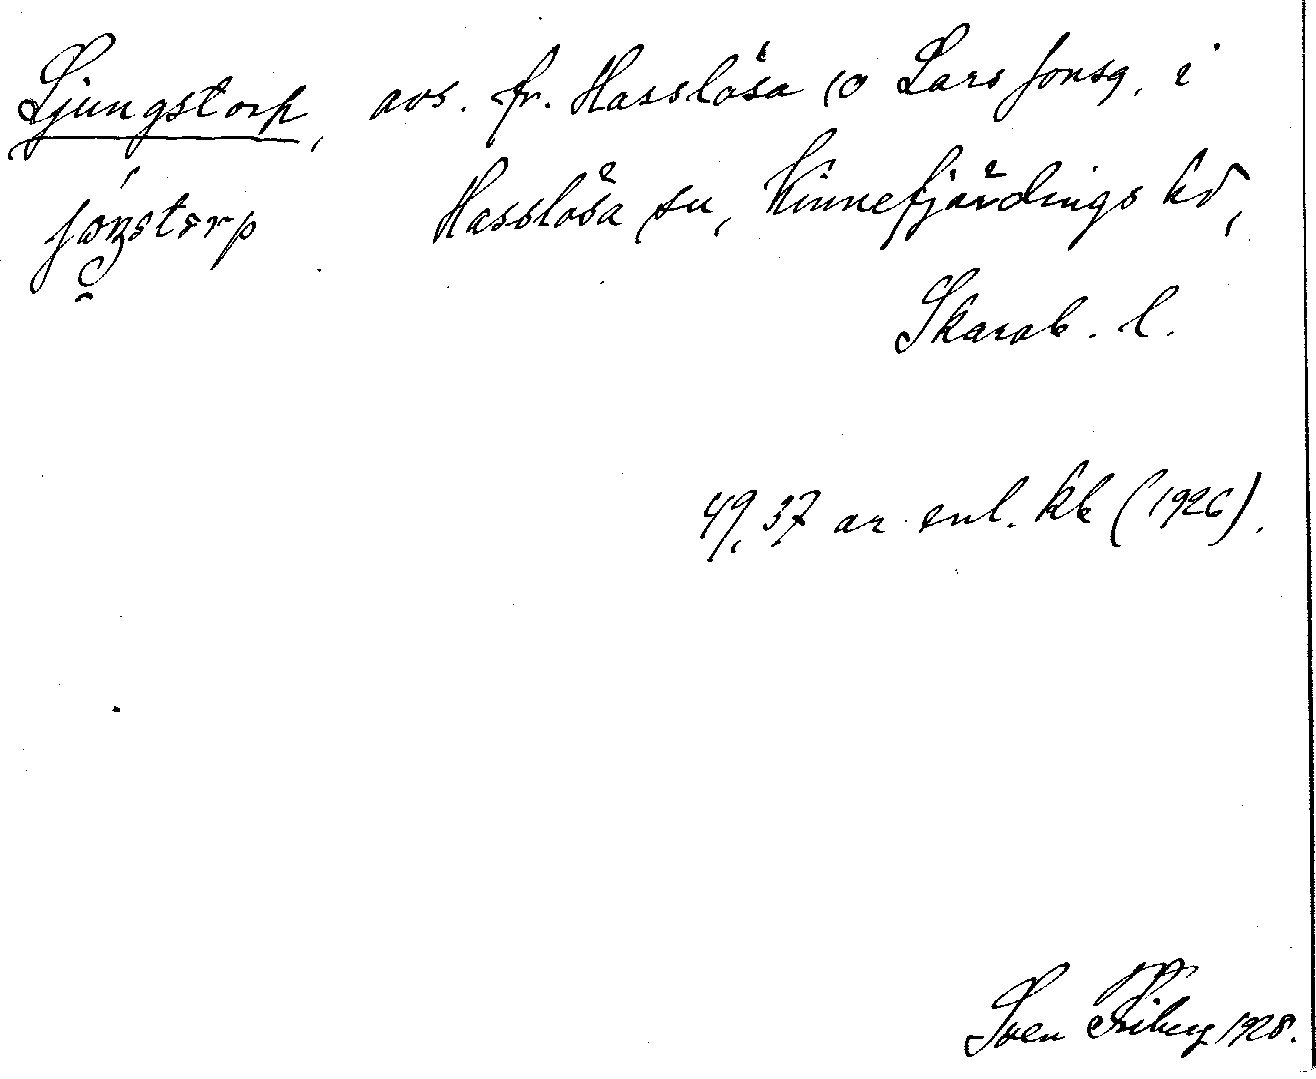 Ljungstorp, avs. fr. Hasslösa Lars Jonsg. i
Hasslösa sn, Kinnefjärdings hd,
Skarab. l.
49,37 ar enl. kb (1926).
Sven Friberg 1928.